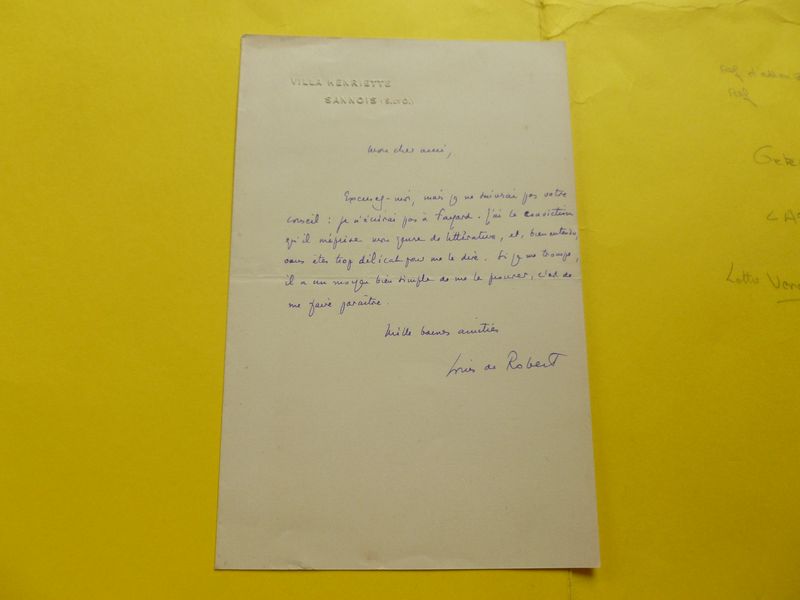 VILLA HENRIETTE
SANNOIS (S.&O.)
Mon cher ami,
Excusez-moi, mais je ne suivrai pas votre
conseil : je n'écrirai pas à Fayard. J'ai la conviction
qu'il méprise mon genre de littérature, et, bien entendu,
vous êtes trop délicat pour me le dire. Si je me trompe,
il a un moyen bien simple de me le prouver, c'est de
me faire paraître.
Mille bonnes amitiés
Louis de Robert
Lettre